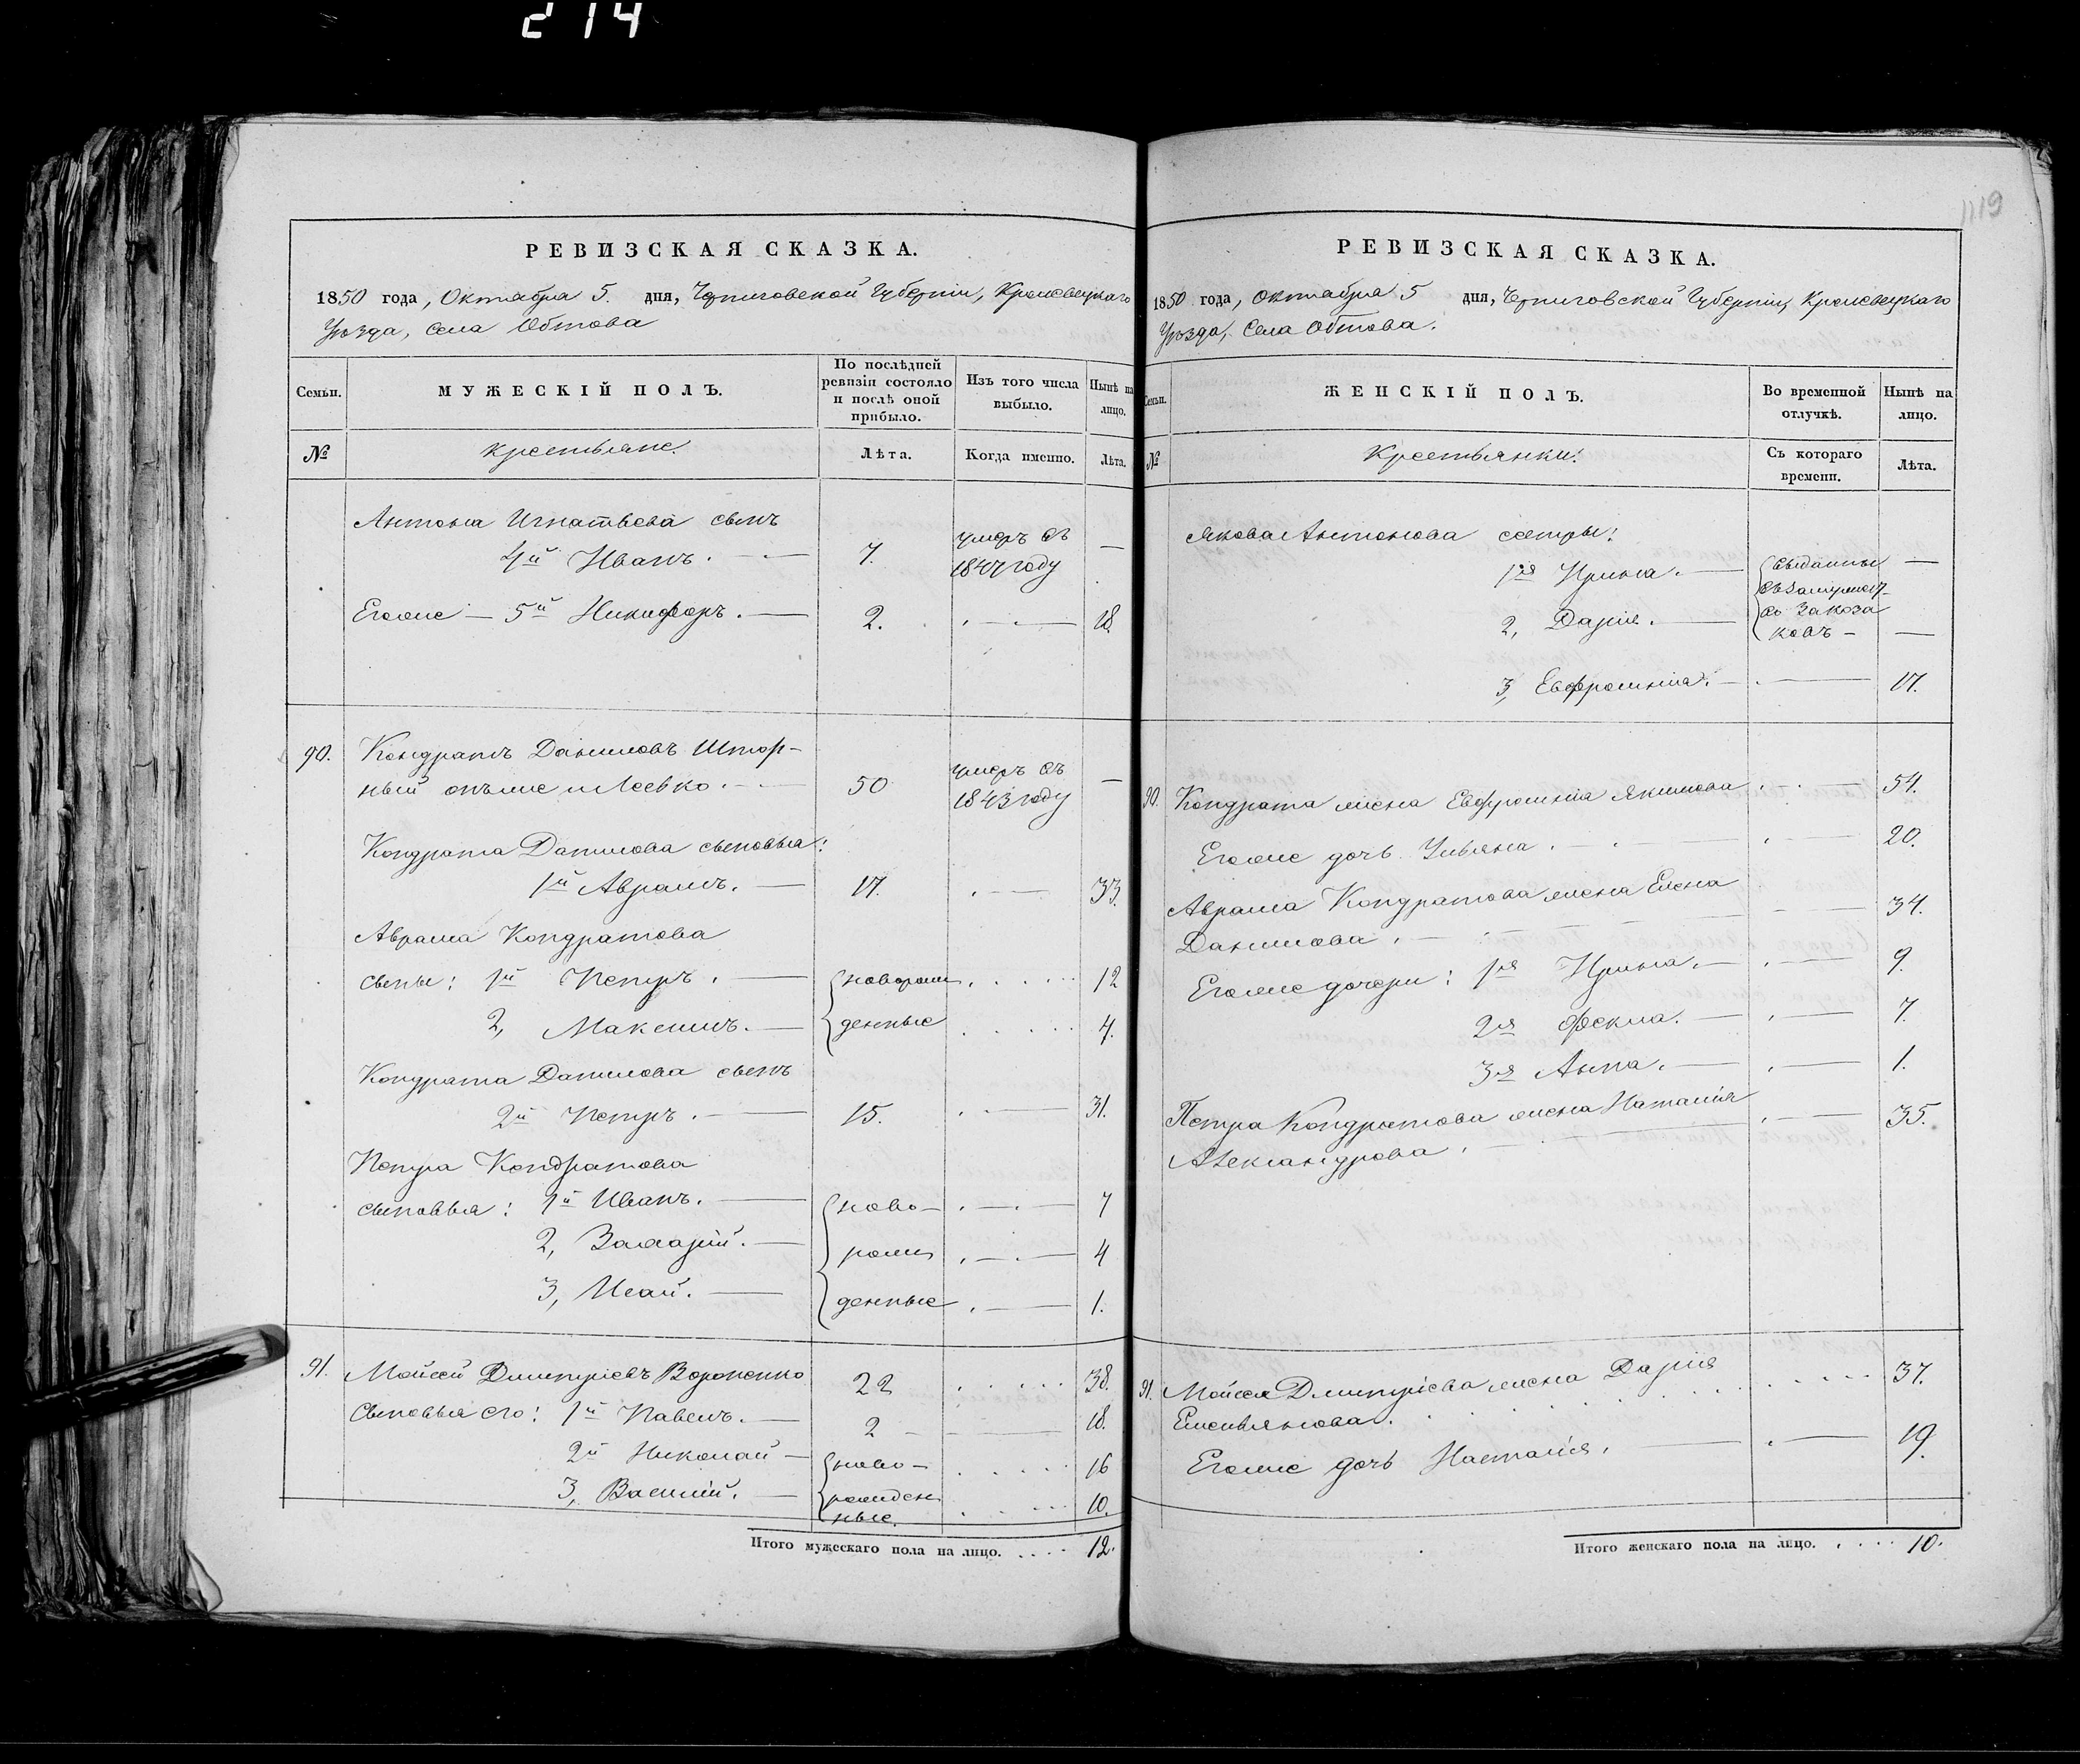 214
1119
РЕВИЗСКАЯ СКАЗКА.
1850 года, Октября 5. дня, Черниговской Губерніи, Кролевецкаго
Уѣзда, Села Обтова
Семьи.
МУЖЕСКІЙ ПОЛЪ.
По послѣдней
ревизіи состояло
и послѣ оной
прибыло.
Изъ того числа
выбыло.
Нынѣ на
лицо.
№
крестьяне.
Лѣта.
Когда именно.
Лѣта.
Антона Игнатьева сынъ
4й Иванъ. 7. умеръ въ 1847 году —
Егоже — 5й Никифоръ. — 2. — 18.
90. Кондратъ Даниловъ Штор-
ный онъ же и Левко. 50 умеръ въ 1843 году —
Кондрата Данилова сыновья:
1й Аврамъ. — 17. — 33.
Аврама Кондратова
сыны: 1й Петръ. — новорож 12
2, Максимъ. — денные 4.
Кондрата Данилова сынъ
2й Петръ. — 15. — 31.
Петра Кондратова
сыновья: 1й Иванъ. — ново- 7
2, Захарій. — рож 4
3, Исай. — денные 1.
91. Мойсей Дмитріевъ Вороненко 22 38.
Сыновья его: 1й Павелъ. — 2 — 18.
2й Николай — ново- 16
3, Василій. — рожден 10.
ные.
Итого мужескаго пола на лицо. .... 12.
РЕВИЗСКАЯ СКАЗКА.
1850 года, Октября 5 дня, Черниговской Губерніи, Кролевецкаго
Уѣзда, Села Обтова.
Семьи.
ЖЕНСКІЙ ПОЛЪ.
Во временной
отлучкѣ.
Нынѣ на
лицо.
№
Крестьянки:
Съ котораго
времени.
Лѣта.
Якова Антонова сестры:
1я Ирина. — выданны —
въ замужест-
2, Дарія. — во за коза
ковъ — —
3, Евфросинія. — 17.
90. Кондрата жена Евфросинія Якимова 54.
Егоже дочь Ульяна. 20.
Аврама Кондратова жена Елена
Данилова. 34.
Егоже дочери: 1я Ирина. — 9.
2я Фекла. — 7.
3я Анна. — 1.
Петра Кондратова жена Наталія
Александрова. 35.
91. Мойсея Дмитріева жена Дарія 37.
Емельянова.
Егоже дочь Наталія. 19.
Итого женскаго пола на лицо. .... 10.